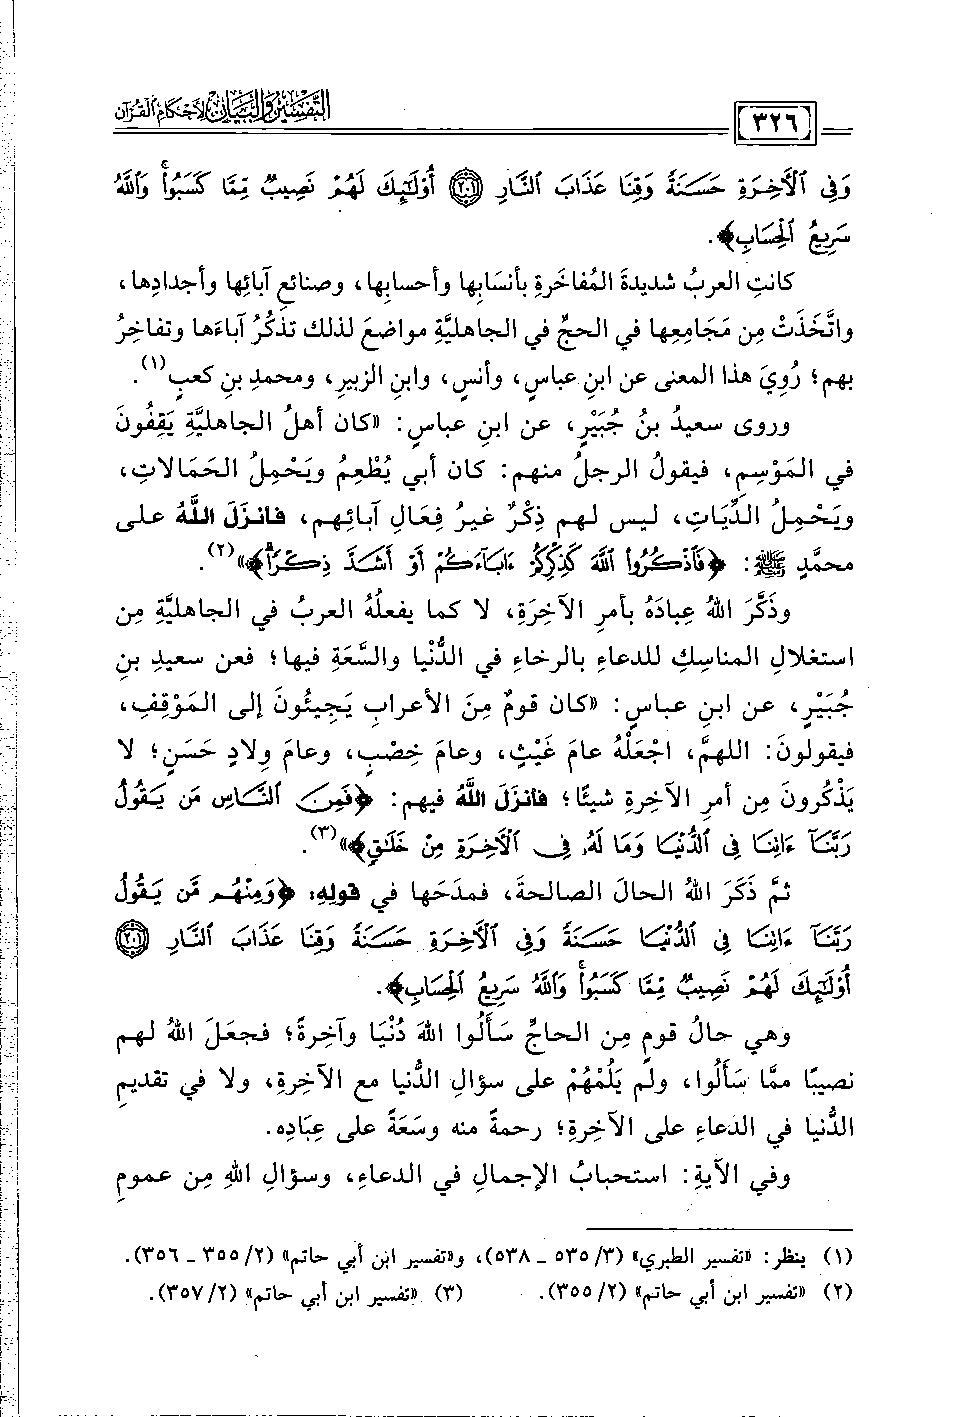 ٣٢٦
التفسير والبيان لأحكام القرآن
وَفِى ٱلْآخِرَةِ حَسَنَةً وَقِنَا عَذَابَ ٱلنَّارِ ۝٢٠١ أُو۟لَٰٓئِكَ لَهُمْ نَصِيبٌ مِّمَّا كَسَبُوا۟ۚ وَٱللَّهُ
سَرِيعُ ٱلْحِسَابِ﴾.
كانتِ العربُ شديدةَ المُفاخَرةِ بأنسَابِها وأحسابِها، وصنائعِ آبائِها وأجدادِها،
واتَّخَذَتْ مِن مَجَامِعِها في الحجِّ في الجاهليَّةِ مواضعَ لذلك تذكُرُ آباءَها وتفاخِرُ
بهم؛ رُوِيَ هذا المعنى عن ابنِ عباسٍ، وأنسٍ، وابنِ الزبيرِ، ومحمدِ بنِ كعبٍ(١).
وروى سعيدُ بنُ جُبَيْرٍ، عن ابنِ عباسٍ: «كان أهلُ الجاهليَّةِ يَقِفُونَ
في المَوْسِمِ، فيقولُ الرجلُ منهم: كان أبي يُطْعِمُ ويَحْمِلُ الحَمَالَاتِ،
ويَحْمِلُ الدِّيَاتِ، ليس لهم ذِكْرٌ غيرُ فِعَالِ آبائِهم، فانزَلَ اللَّهُ على
محمَّدٍ ﷺ: ﴿فَٱذْكُرُوا۟ ٱللَّهَ كَذِكْرِكُمْ ءَابَآءَكُمْ أَوْ أَشَدَّ ذِكْرًا﴾»(٢).
وذَكَّرَ اللهُ عِبادَهُ بأمرِ الآخِرةِ، لا كما يفعلُهُ العربُ في الجاهليَّةِ مِن
استغلالِ المناسِكِ للدعاءِ بالرخاءِ في الدُّنْيا والسَّعَةِ فيها؛ فعن سعيدِ بنِ
جُبَيْرٍ، عن ابنِ عباسٍ: «كان قومٌ مِنَ الأعرابِ يَجِيئُونَ إلى المَوْقِفِ،
فيقولونَ: اللهمَّ، اجْعَلْهُ عامَ غَيْثٍ، وعامَ خِصْبٍ، وعامَ وِلادٍ حَسَنٍ؛ لا
يَذْكُرونَ مِن أمرِ الآخِرةِ شيئًا؛ فأنزَلَ اللَّهُ فيهم: ﴿فَمِنَ ٱلنَّاسِ مَن يَقُولُ
رَبَّنَآ ءَاتِنَا فِى ٱلدُّنْيَا وَمَا لَهُۥ فِى ٱلْآخِرَةِ مِنْ خَلَٰقٍ﴾»(٣).
ثمَّ ذَكَرَ اللهُ الحالَ الصالحةَ، فمدَحَها في قولِهِ: ﴿وَمِنْهُم مَّن يَقُولُ
رَبَّنَآ ءَاتِنَا فِى ٱلدُّنْيَا حَسَنَةً وَفِى ٱلْآخِرَةِ حَسَنَةً وَقِنَا عَذَابَ ٱلنَّارِ ۝٢٠١
أُو۟لَٰٓئِكَ لَهُمْ نَصِيبٌ مِّمَّا كَسَبُوا۟ۚ وَٱللَّهُ سَرِيعُ ٱلْحِسَابِ﴾.
وهي حالُ قومٍ مِن الحاجِّ سَأَلُوا اللهَ دُنْيَا وآخِرةً؛ فجعَلَ اللهُ لهم
نصيبًا ممَّا سَأَلُوا، ولم يَلُمْهُمْ على سؤالِ الدُّنيا مع الآخِرةِ، ولا في تقديمِ
الدُّنيا في الدعاءِ على الآخِرةِ؛ رحمةً منه وسَعَةً على عِبَادِه.
وفي الآيةِ: استحبابُ الإجمالِ في الدعاءِ، وسؤالِ اللهِ مِن عمومِ
(١) ينظر: «تفسير الطبري» (٣/ ٥٣٥ ـ ٥٣٨)، و«تفسير ابن أبي حاتم» (٢/ ٣٥٥ ـ ٣٥٦).
(٢) «تفسير ابن أبي حاتم» (٢/ ٣٥٥). (٣) «تفسير ابن أبي حاتم» (٢/ ٣٥٧).